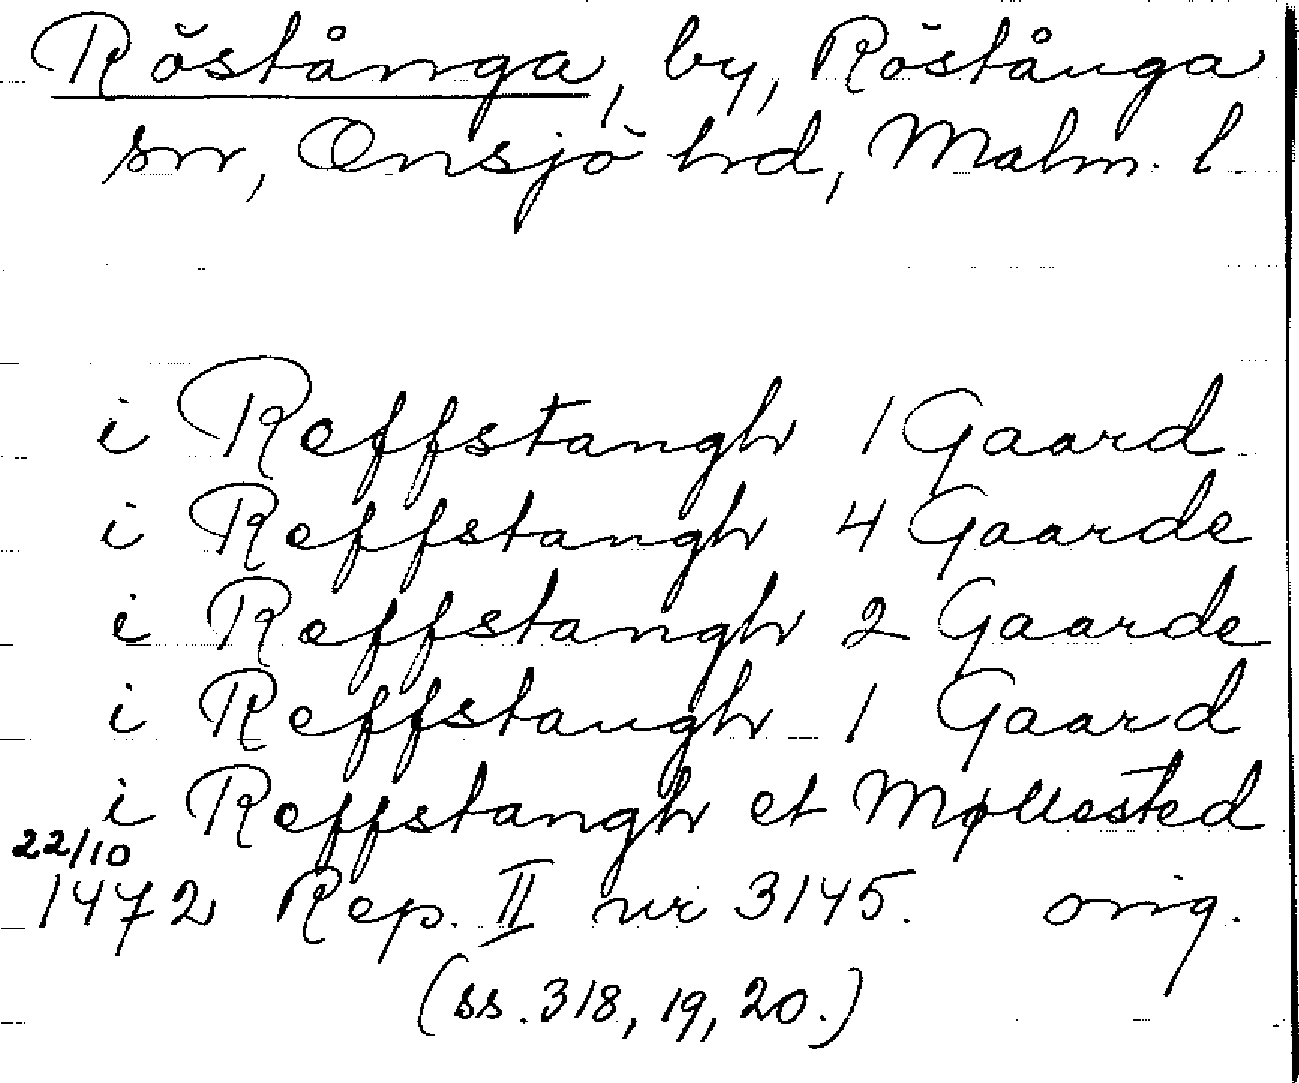 Röstånga, by, Röstånga
sn, Onsjö hrd, Malm. l.
i Reffstangh 1 Gaard
i Reffstangh 4 Gaarde
i Reffstangh 2 Gaarde
i Reffstangh 1 Gaard
i Reffstangh et Møllested
22/10
1472 Rep. II nr 3145. orig.
(ss. 318, 19, 20.)